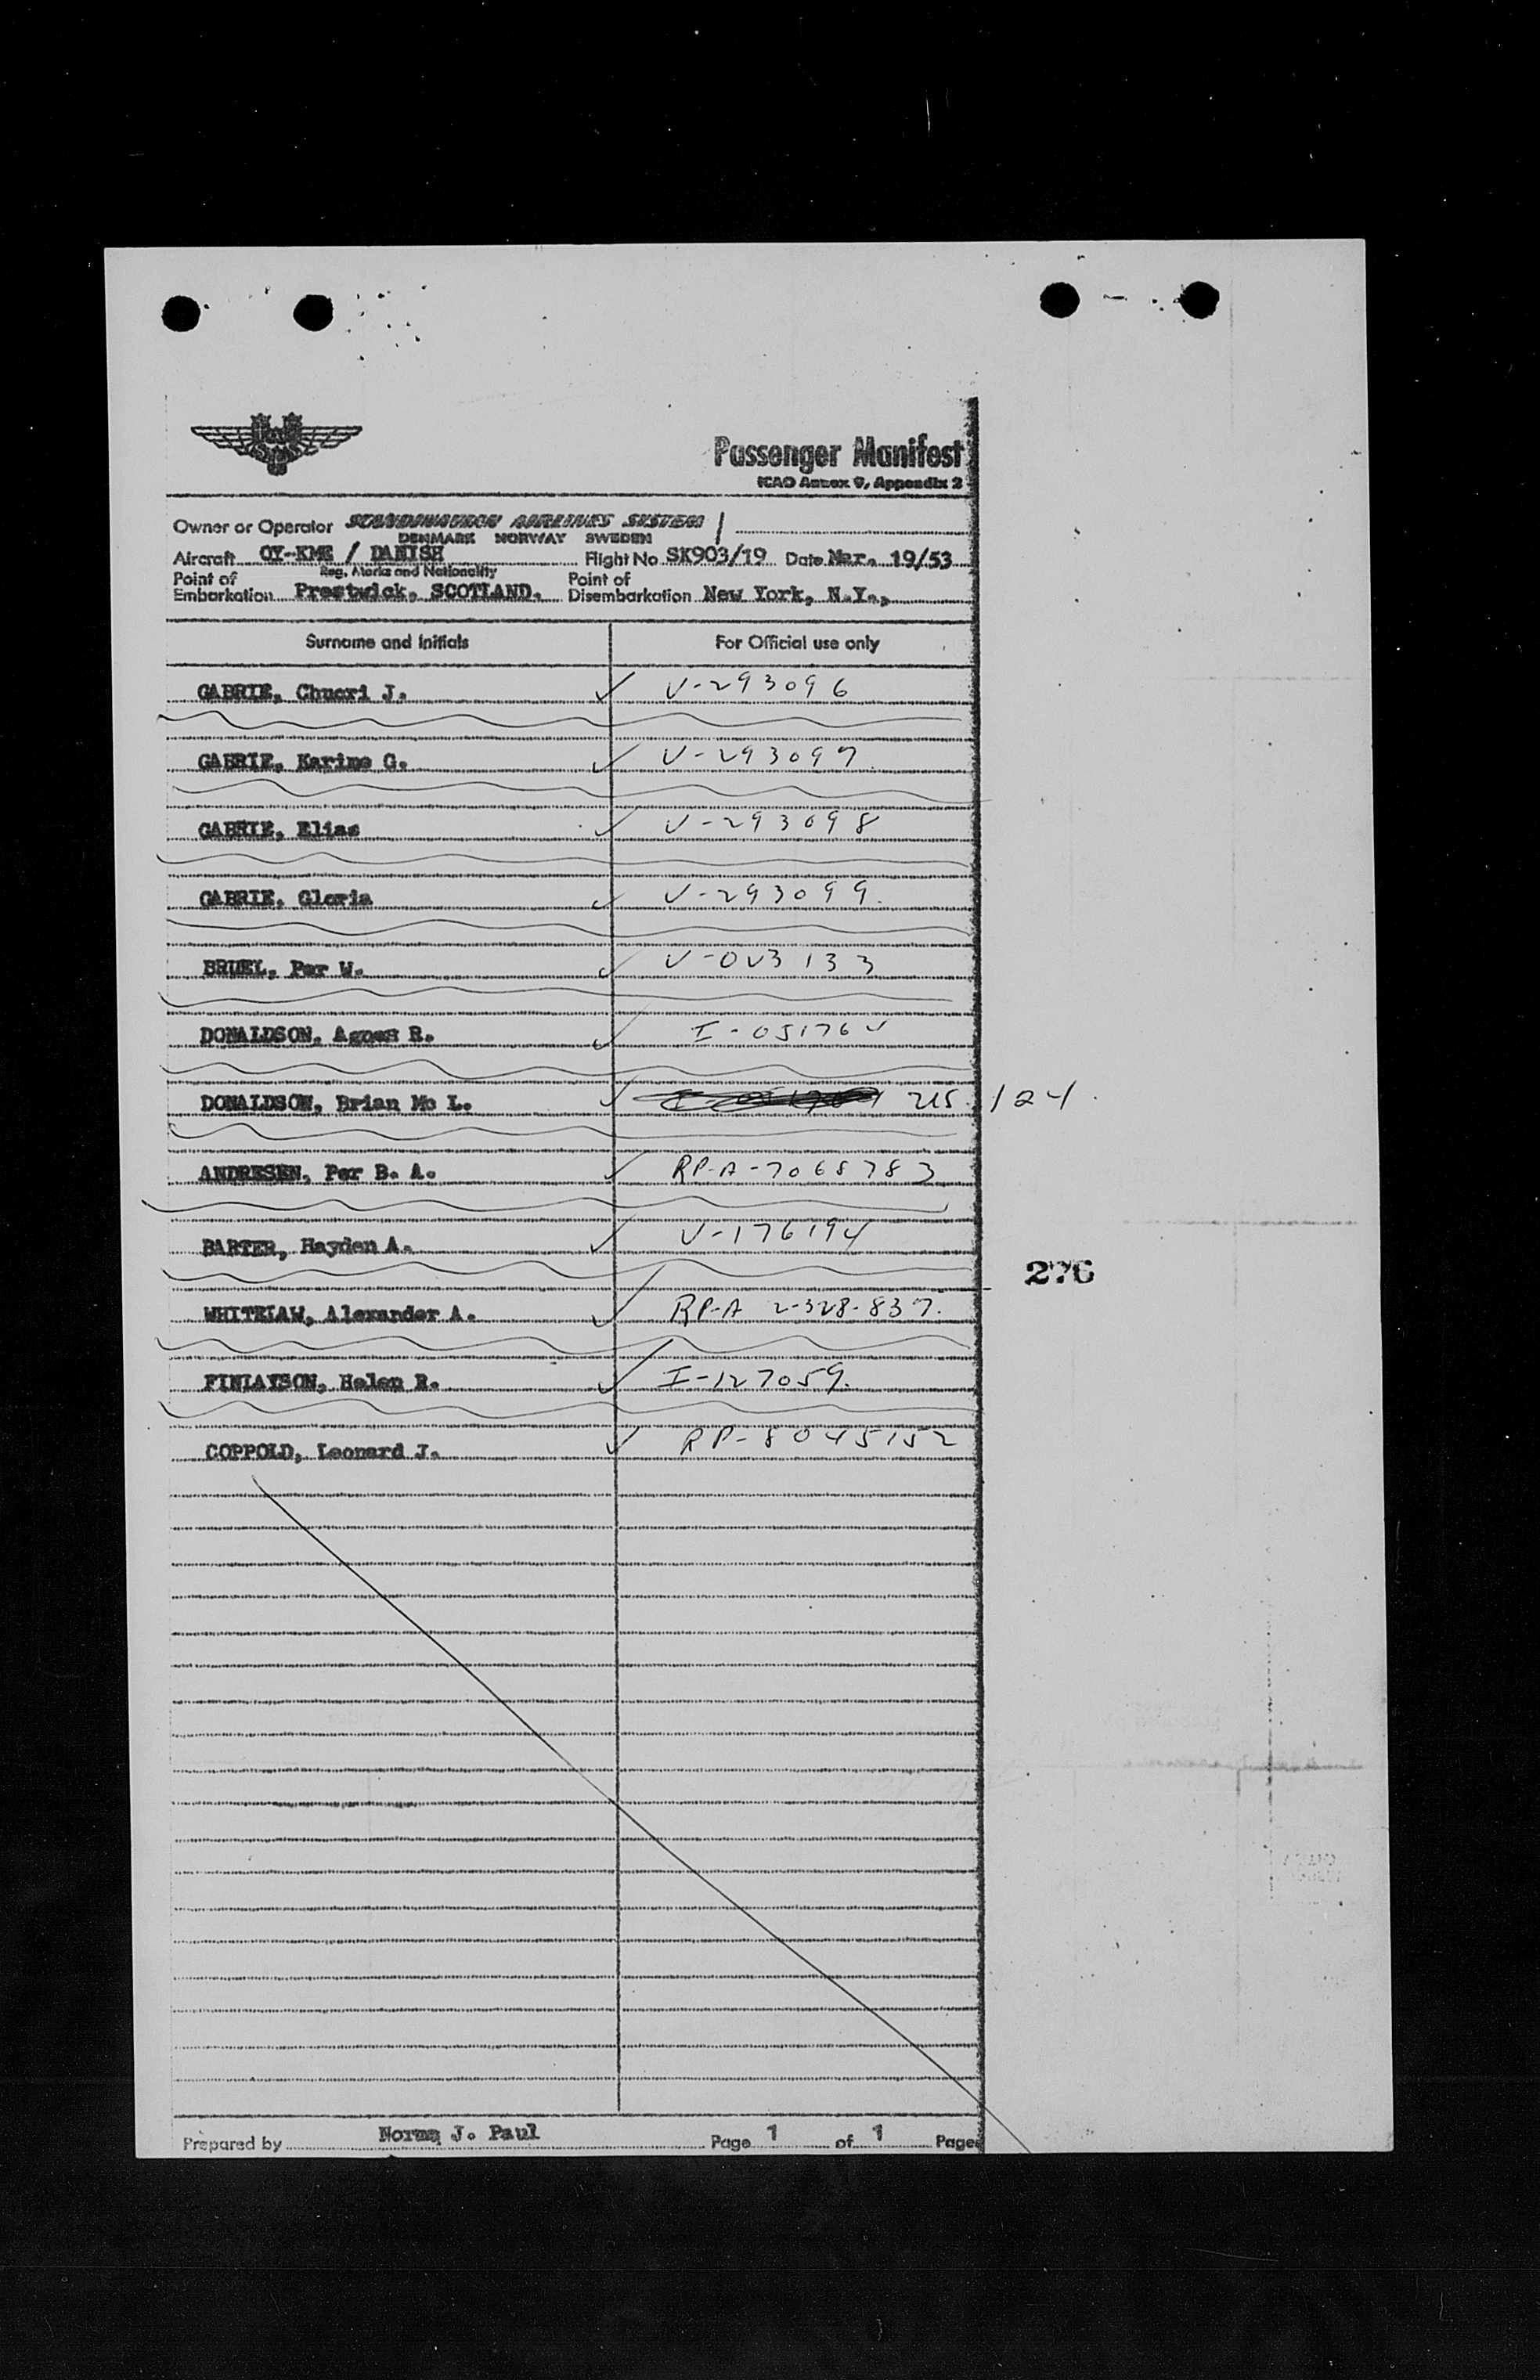 Passenger Manifest
ICAO Annex 9, Appendix 2
Owner or Operator SCANDINAVIAN AIRLINES SYSTEM
DENMARK NORWAY SWEDEN
Aircraft OY-KME / DANISH Flight No SK903/19 Date Mar. 19/53
Reg. Marks and Nationality
Point of Embarkation Prestwick, SCOTLAND. Point of Disembarkation New York, N.Y.,
Surname and Initials For Official use only
GABRIE, Chucri J. V-293096
GABRIE, Karime G. V-293097
GABRIE, Elias V-293098
GABRIE, Gloria V-293099.
BRUEL, Per W. V-0V3133
DONALDSON, Agnes R. I-05176V
DONALDSON, Brian Mc L. 124
ANDRESEN, Per B. A. RP-A-7068783
BARTER, Hayden A. V-176194
276
WHITELAW, Alexander A. RP-A 2-328-837.
FINLAYSON, Helen R. I-127059.
COPPOLD, Leonard J. RP-8045152
Prepared by Norma J. Paul Page 1 of 1 Pages